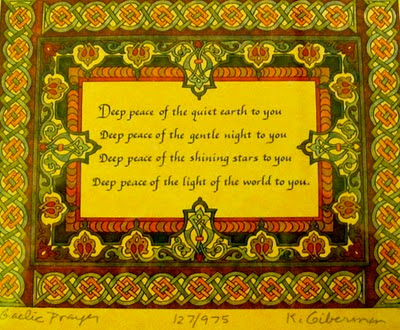 Deep peace of the quiet earth to you
Deep peace of the gentle night to you
Deep peace of the shining stars to you
Deep peace of the light of the world to you.
Gaelic Prayer 127/975 K. Giberman